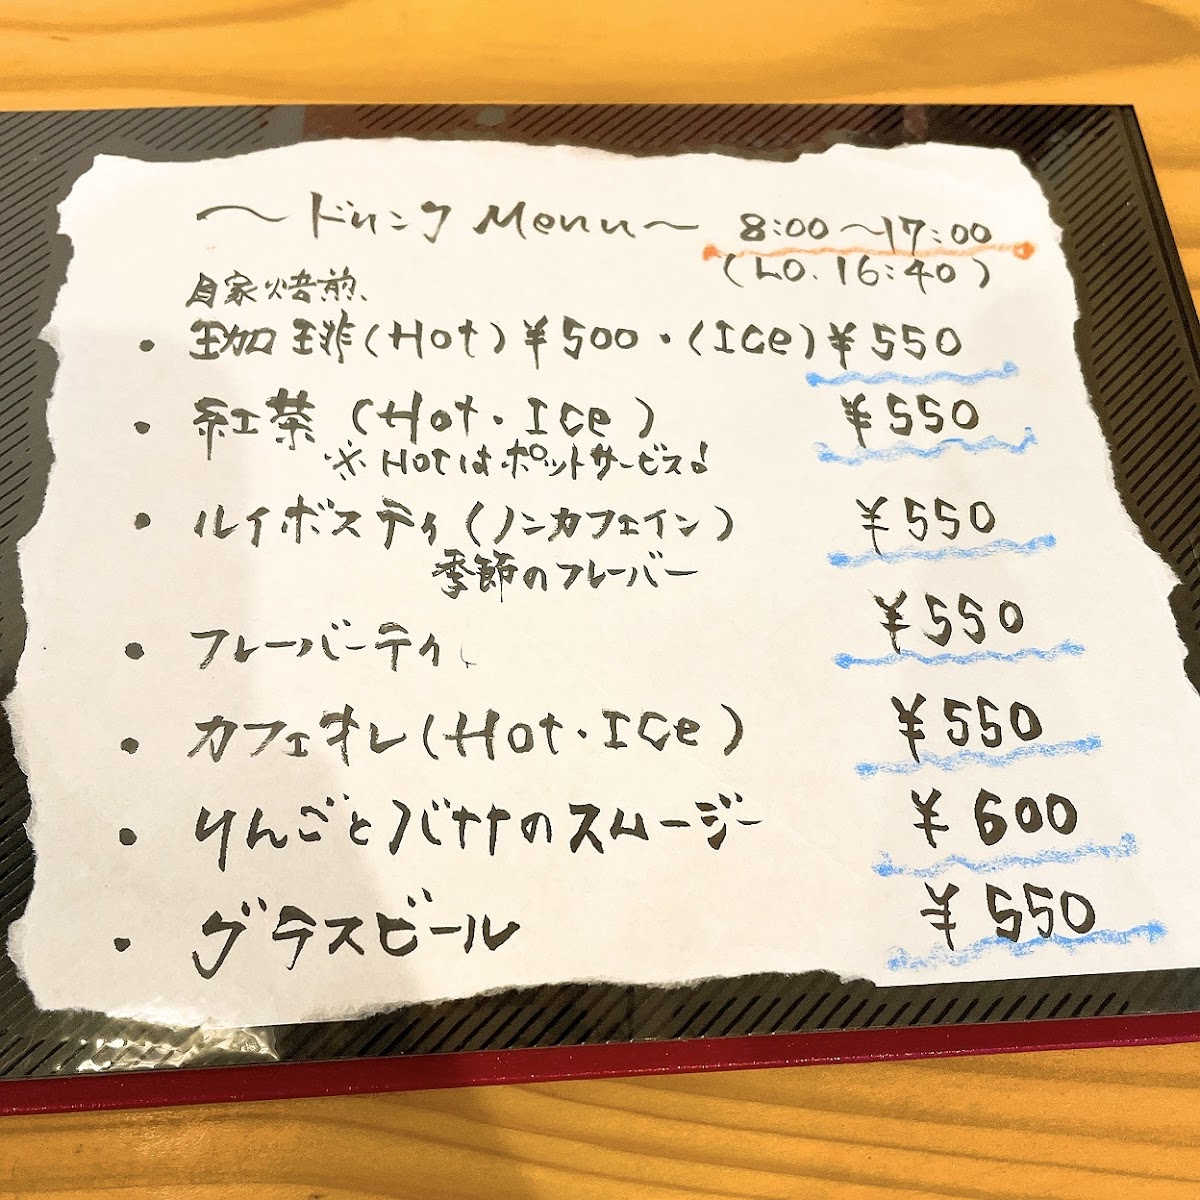 ～ドリンク Menu～ 8:00～17:00
(LO. 16:40)
自家焙煎、
・珈琲(Hot)¥500・(Ice)¥550
・紅茶 (Hot・Ice) ¥550
※Hotはポットサービス!
・ルイボスティ(ノンカフェイン) ¥550
季節のフレーバー
・フレーバーティ ¥550
・カフェオレ(Hot・Ice) ¥550
・りんごとバナナのスムージー ¥600
・グラスビール ¥550